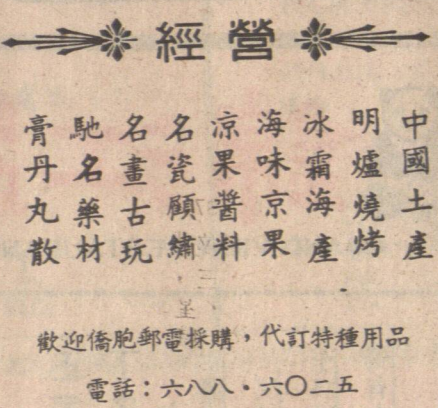 經營
中國土產
明爐燒烤
冰霜海產
海味京果
凉果醬料
名瓷顧繡
名畫古玩
馳名藥材
膏丹丸散
歡迎僑胞郵電採購，代訂特種用品
電話：六八八·六〇二五